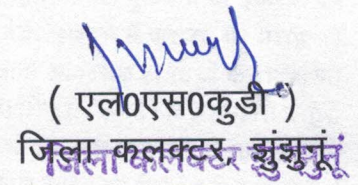 ( एल0एस0कुडी )
जिला कलक्टर, झुंझुनूं
जिला कलक्टर झुंझुनूं